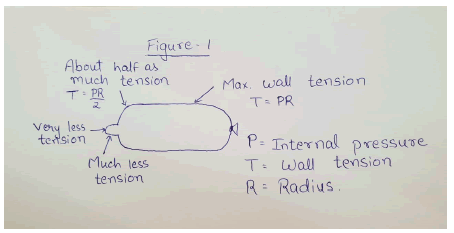 Figure-1
About half as
much tension
T = PR/2
Max. wall tension
T = PR
Very less
tension
Much less
tension
P = Internal pressure
T = Wall tension
R = Radius.